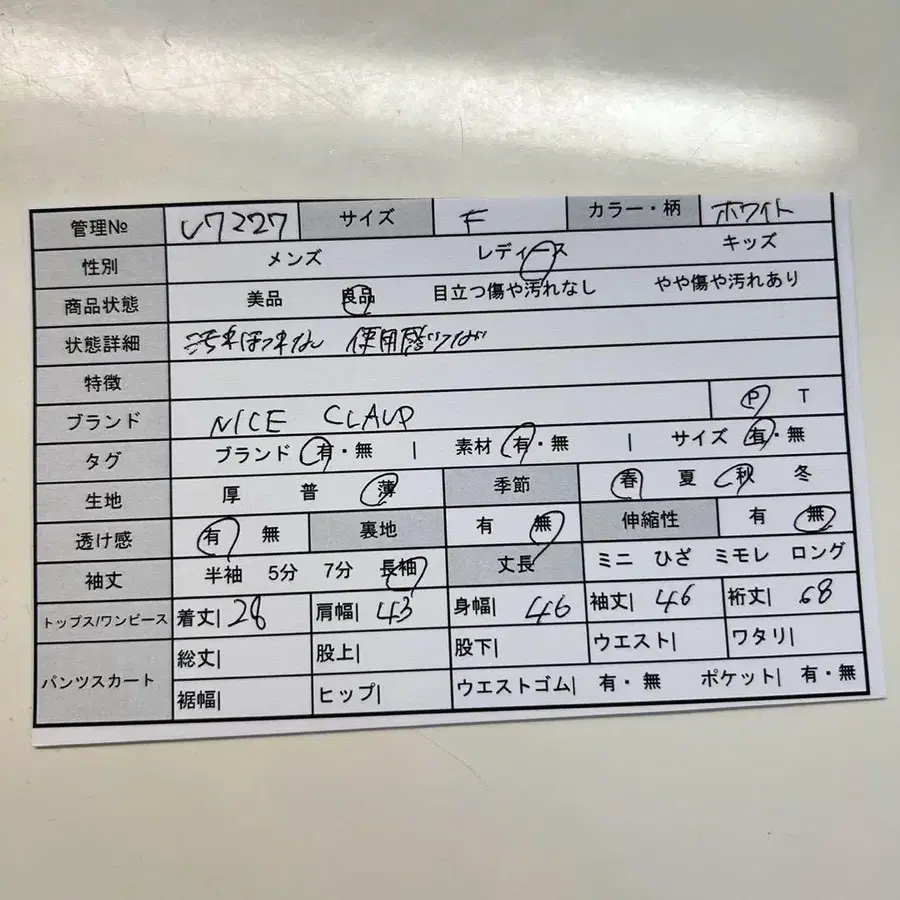 管理№ U7227 サイズ F カラー・柄 ホワイト
性別 メンズ レディース キッズ
商品状態 美品 良品 目立つ傷や汚れなし やや傷や汚れあり
状態詳細 使用感
特徴
ブランド NICE CLAUP P T
タグ ブランド 有・無 | 素材 有・無 | サイズ 有・無
生地 厚 普 薄 季節 春 夏 秋 冬
透け感 有 無 裏地 有 無 伸縮性 有 無
袖丈 半袖 5分 7分 長袖 丈長 ミニ ひざ ミモレ ロング
トップス/ワンピース 着丈| 28 肩幅| 43 身幅| 46 袖丈| 46 裄丈| 68
パンツスカート 総丈| 股上| 股下| ウエスト| ワタリ|
裾幅| ヒップ| ウエストゴム| 有・無 ポケット| 有・無